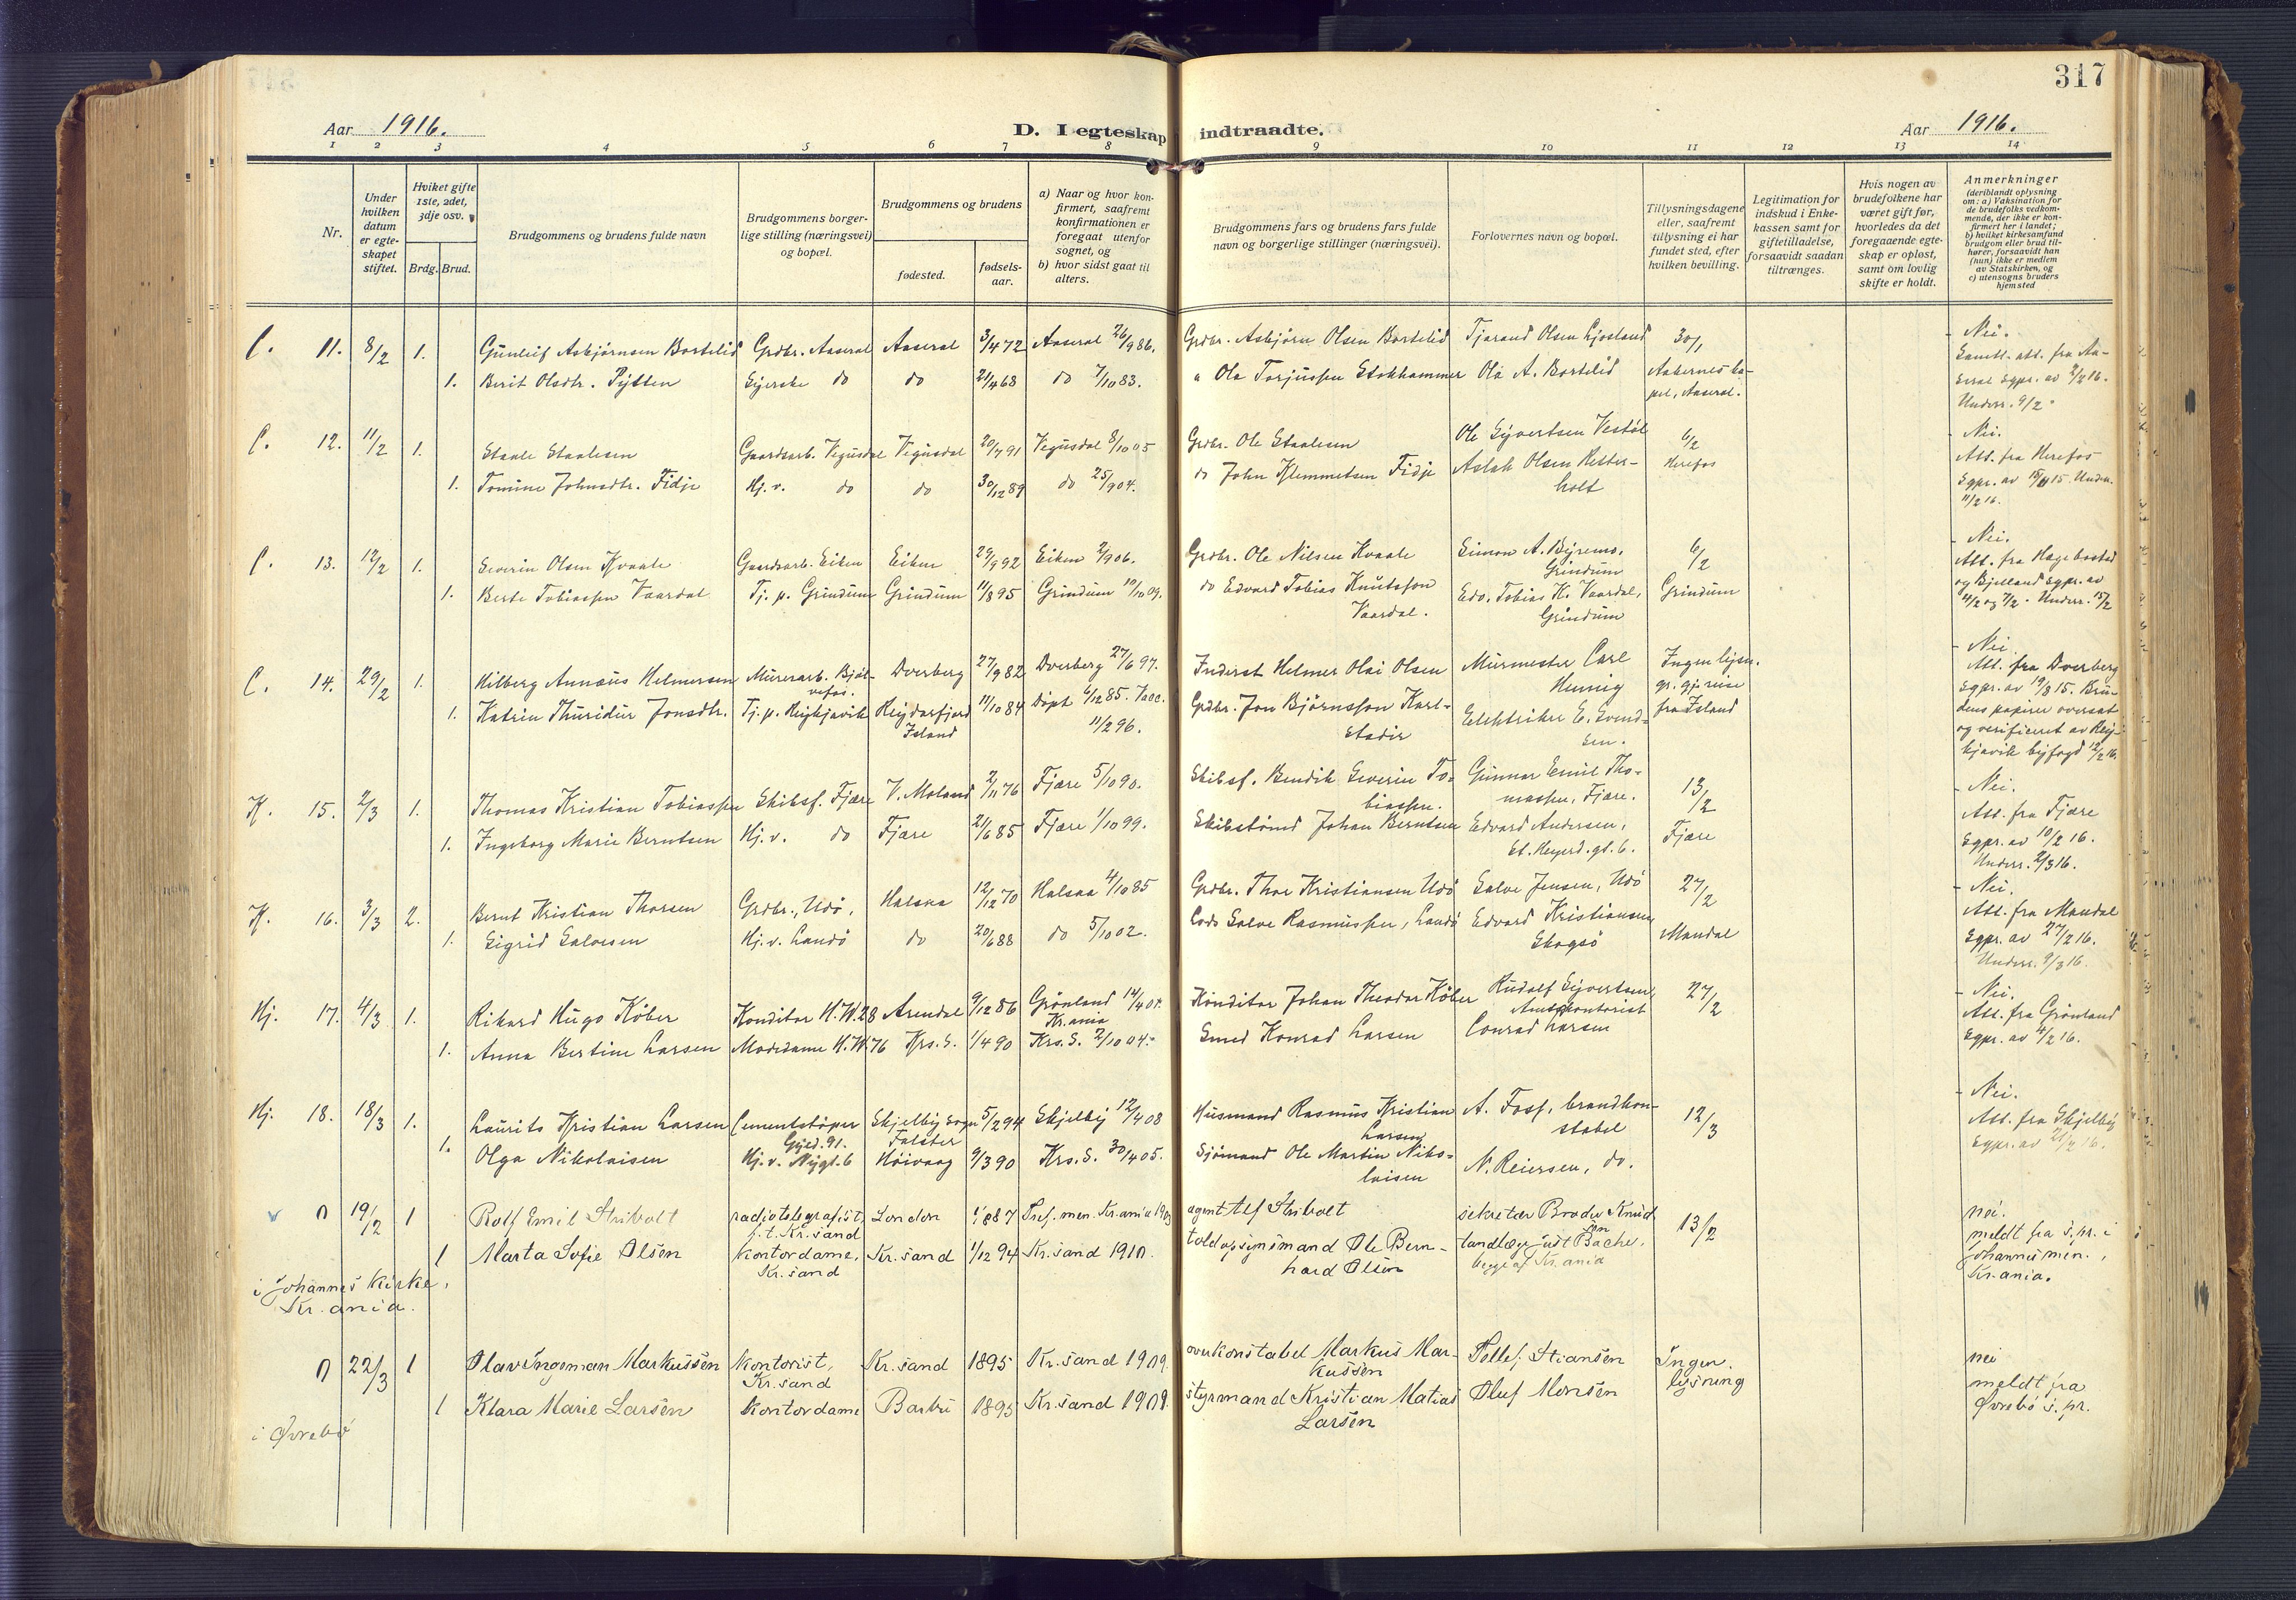 317
Aar 1916.
D. I egteskap indtraadte.
Aar 1916.
1 2 3 4 5 6 7 8 9 10 11 12 13 14
Nr.
Under hvilken datum er egteskapet stiftet.
Hviket gifte 1ste, 2det, 3dje osv.
Brdg. Brud.
Brudgommens og brudens fulde navn
Brudgommens borgerlige stilling (næringsvei) og bopæl.
Brudgommens og brudens
fødested.
fødselsaar.
a) Naar og hvor konfirmert, saafremt konfirmationen er foregaat utenfor sognet, og
b) hvor sidst gaat til alters.
Brudgommens fars og brudens fars fulde navn og borgerlige stillinger (næringsvei).
Forlovernes navn og bopæl.
Tillysningsdagene eller, saafremt tillysning ei har fundet sted, efter hvilken bevilling.
Legitimation for indskud i Enkekassen samt for giftetilladelse, forsaavidt saadan tiltrænges.
Hvis nogen av brudefolkene har været gift før, hvorledes da det foregaaende egteskap er opløst, samt om lovlig skifte er holdt.
Anmerkninger
(deriblandt oplysning om: a) Vaksination for de brudefolks vedkommende, der ikke er konfirmert her i landet; b) hvilket kirkesamfund brudgom eller brud tilhører, forsaavidt han (hun) ikke er medlem av Statskirken, og c) utensogns bruders hjemsted
C. 11. 8/2 1. Gunleif Asbjørnsen Bortelid Grdbr. Aaseral Aaseral 3/4 72 Aaseral 26/9 86. Grdbr. Asbjørn Olsen Bortelid Tjarand Olsen Ljosland 30/1 Nei.
1. Berit Olsdtr. Pytten Syerske do do 21/4 68 do 7/10 83. Ola Torjussen Stokhammer Ola A. Bortelid Aakernes kapel, Aaseral. att. fra Aaseral sgpr. av 2/2 16. Underr. 9/2
C. 12. 11/2 1. Staale Staalesen Gaardsarb. Vegusdal Vegusdal 20/7 91 Vegusdal 8/10 05 Grdbr. Ole Staalesen Ole Syvertsen Vestøl 6/2 Nei.
1. Tomine Johnsdtr. Fidje Hj. v. do do 30/12 89 do 25/9 04. do John Klemmetsen Fidje Aslak Olsen Retterholt Herefos Att. fra Herefos sgpr. av 15/11 15. Underr. 11/2 16.
C. 13. 12/2 1. Severin Olsen Kvaale Gaardsarb. Eiken Eiken 29/9 92 Eiken 2/9 06. Grdbr. Ole Nilsen Kvaale Simon A. Byremo, Grindum 6/2 Nei.
1. Berte Tobiassen Vaardal Tj. p. Grindum Grindum 11/8 95 Grindum 10/10 09. do Edvard Tobias Knutsson Vaardal. Edv. Tobias K. Vaardal, Grindum Grindum Att. fra Hægebostad og Bjelland sgpr. av 4/2 og 7/2. Underr. 15/2
C. 14. 29/2 1. Hilberg Annæus Helmersen Murerarb. Bjølvefos. Dverberg 27/9 82 Dverberg 27/6 97. Inderst Helmer Olai Olsen Murmester Carl Hennig Ingen lysn. gr. gj. reise fra Island Nei.
1. Katrin Thuridur Jonsdtr. Tj. p. Reykjavik Reydarfjord Island 11/10 84 Døpt 6/12 85. Vacc. 11/2 96. Grdbr. Jon Bjørnsson Karlstadir Elektriker E. Svendsen. Att. fra Dverberg sgpr. av 19/8 15. Brudens papirer oversat og verificeret av Reykjavik byfogd 12/2 16.
K. 15. 2/3 1. Thomas Kristian Tobiassen Skibsf. Fjære V. Moland 2/11 76 Fjære 5/10 90. Skibsf. Bendik Severin Tobiassen. Gunnar Emil Thomassen, Fjære. 13/2 Nei.
1. Ingeborg Marie Berntsen Hj. v. do Fjære 21/6 85 Fjære 1/10 99. Skibstømd Johan Berntsen Edvard Andersen, St. Heyerd. gt. 6. Fjære Att. fra Fjære sgpr. av 10/2 16. Underr. 2/3 16.
K. 16. 3/3 2. Bernt Kristian Thorsen Grdbr., Udø, Halsaa 12/12 70 Halsaa 4/10 85 Grdbr. Thor Kristiansen Udø Salve Jensen, Udø 27/2 Nei.
1. Sigrid Salvesen Hj. v. Landø do 20/6 88 do 5/10 02. Lods Salve Rasmussen, Landø Edvard Kristiansen Skogsø Mandal Att. fra Mandal sgpr. av 27/2 16. Underr. 9/3 16.
Hj. 17. 4/3 1. Rikard Hugo Köber Konditor H. W. 28 Arendal 9/12 86 Grønland Kr.ania 14/4 01. Konditor Johan Theodor Köber Rudolf Syvertsen, Amtskontorist 27/2 Nei.
1. Anna Bertine Larsen Modedame H. W. 76 Krs. S. 1/4 90 Krs. S. 2/10 04. Smed Konrad Larsen Conrad Larsen Att. fra Grønland sgpr. av 4/2 16.
Hj. 18. 18/3 1. Laurits Kristian Larsen Cementstøper Gyld. 91. Skjelby sogn Falster 5/2 94 Skjelby 12/4 08 Husmand Rasmus Kristian Larsen A. Foss, brandkonstabel 12/3 Nei.
1. Olga Nikolaisen Hj. v. Nygt. 6 Høivaag 9/3 90 Krs. S. 30/4 05. Sjømand Ole Martin Nikolaisen N. Reiersen, do. Att. fra Skjelby sgpr. av 21/2 16.
0 19/2 1 Rolf Emil Stribolt radiotelegrafist, f. t. Kr.sand London 1887 men. Kr.ania 1903 agent Alf Stribolt sekretær Broder Knudsen 13/2 nei.
1 Marta Sofie Olsen kontordame, Kr.sand Kr.sand 1/12 94 Kr.sand 1910. toldopsynsmand Ole Bernhard Olsen tandlæge Just Bache, begge af Kr.ania meldt fra s.pr. i Johannes men., Kr.ania.
i Johannes kirke, Kr.ania.
0 22/3 1 Olav Ingeman Markussen kontorist, Kr.sand Kr.sand 1895 Kr.sand 1909. overkonstabel Markus Markussen Pellef. Stiansen Ingen lysning nei
1 Klara Marie Larsen kontordame Barbu 1895 Kr.sand 1909. styrmand Kristian Matias Larsen Oluf Monsen meldt fra Øvrebø s.pr.
i Øvrebø